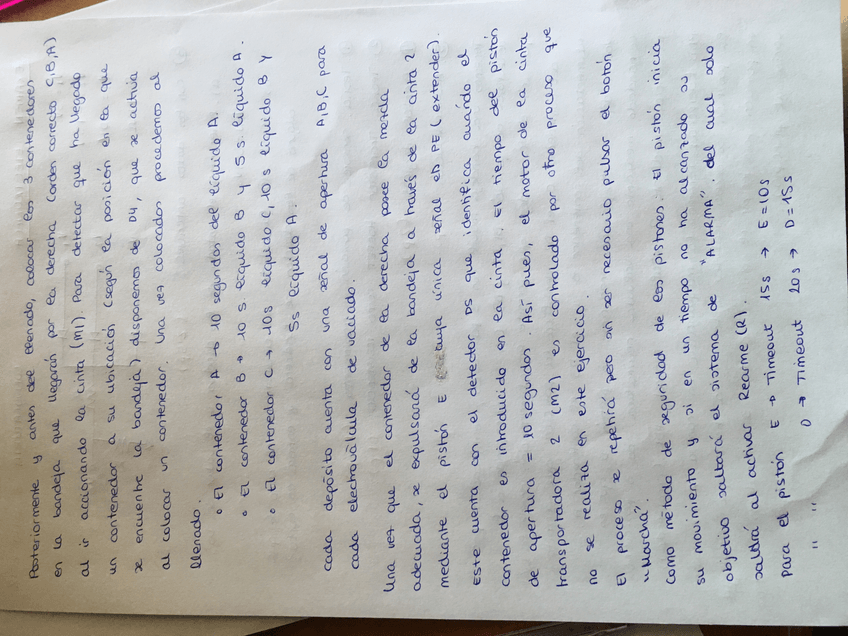 Posteriormente y antes del llenado, colocar los 3 contenedores
en la bandeja que llegarán por la derecha (orden correcto C,B,A)
al ir accionando la cinta (M1). Para detectar que ha llegado
un contenedor a su ubicación (según la posición en la que
se encuentre la bandeja) disponemos de D4, que se activa
al colocar un contenedor. Una vez colocados procedemos al
llenado.
∘ El contenedor A → 10 segundos del líquido A.
∘ El contenedor B → 10 s líquido B y 5 s. líquido A.
∘ El contenedor C → 10 s líquido C, 10 s líquido B y
5s líquido A.
cada depósito cuenta con una señal de apertura A,B,C para
cada electroválvula de vaciado.
Una vez que el contenedor de la derecha posee la mezcla
adecuada, se expulsará de la bandeja a través de la cinta 2
mediante el pistón E cuya única señal es PE (extender).
Este cuenta con el detector D5 que identifica cuándo el
contenedor es introducido en la cinta. El tiempo del pistón
de apertura = 10 segundos. Así pues, el motor de la cinta
transportadora 2 (M2) es controlado por otro proceso que
no se realiza en este ejercicio.
El proceso se repetirá pero sin ser necesario pulsar el botón
"Marcha".
Como método de seguridad de los pistones. El pistón inicia
su movimiento y si en un tiempo no ha alcanzado su
objetivo saltará el sistema de "ALARMA". del cual solo
saldrá al activar Rearme (R).
Para el pistón E → Timeout 15s → E = 10s
" " D → Timeout 20s → D = 15s